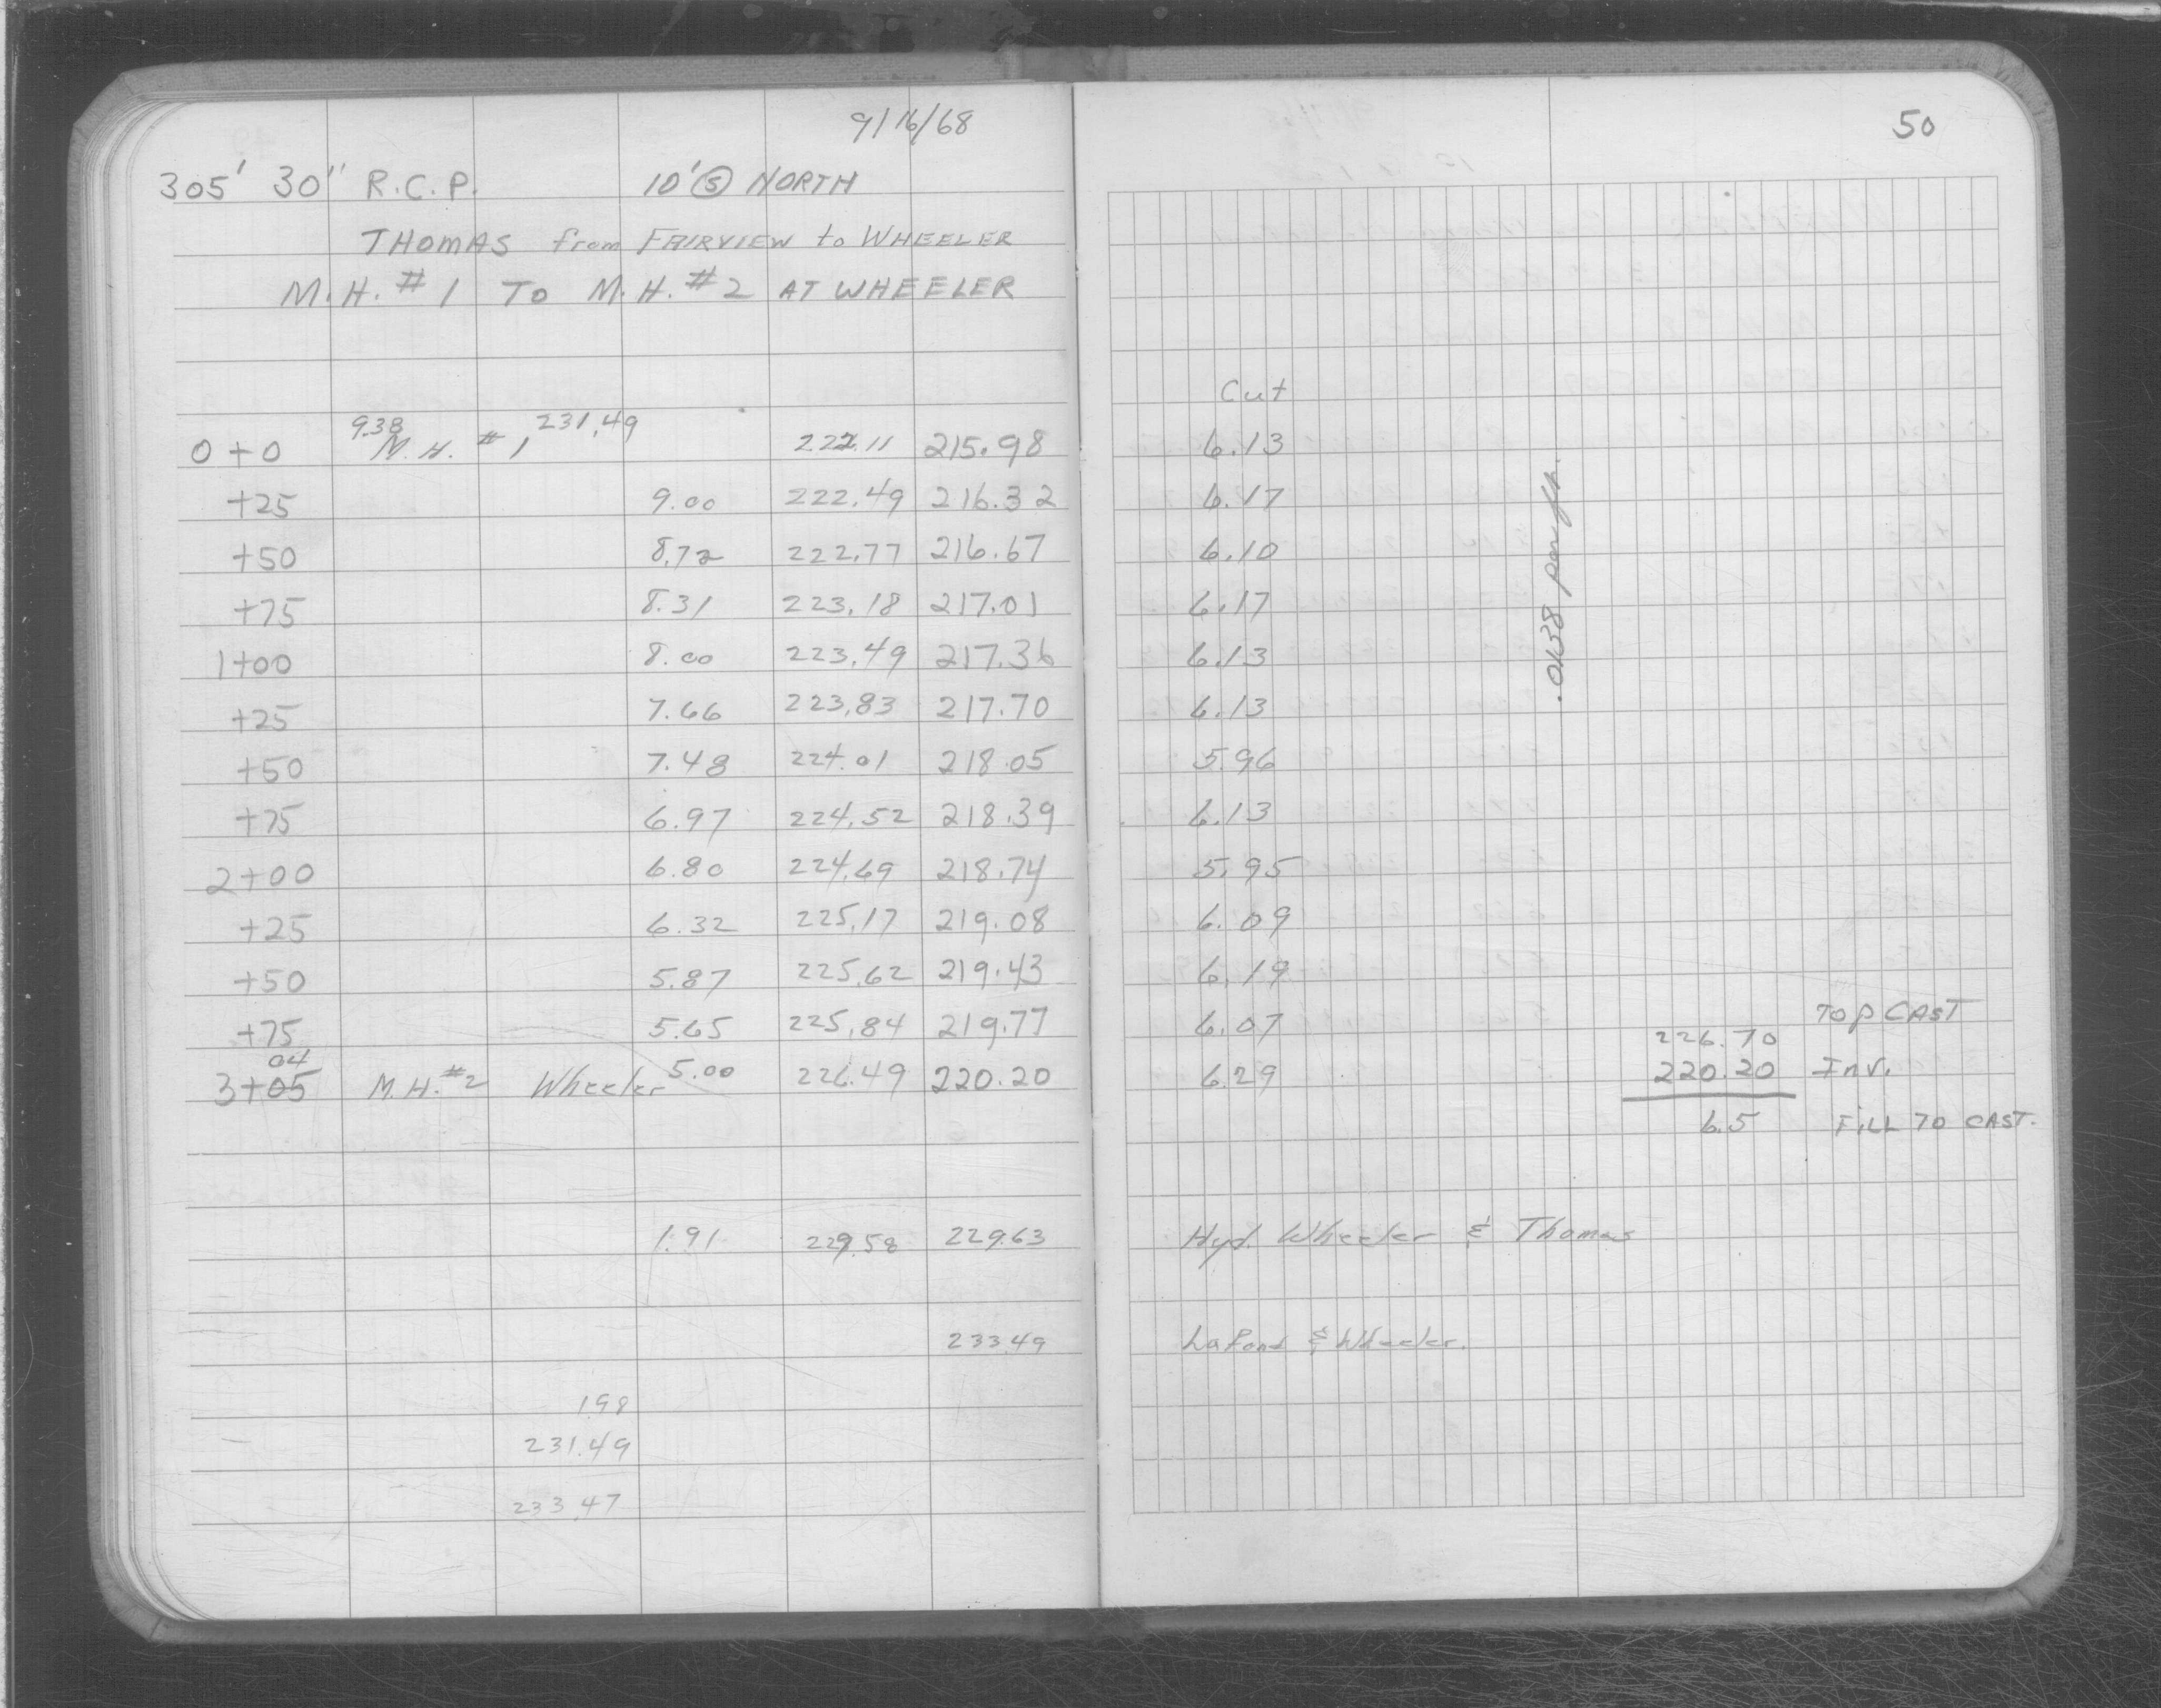 9/16/68
50
305' 30" R.C.P. 10' Ⓢ NORTH
THOMAS from FAIRVIEW to WHEELER
M.H. #1 TO M.H. #2 AT WHEELER
Cut
9.38 231.49
0+0 M.H. #1 222.11 215.98 6.13
+25 9.00 222.49 216.32 6.17
+50 8.72 222.77 216.67 6.10
+75 8.31 223.18 217.01 6.17
1+00 8.00 223.49 217.36 6.13
+25 7.66 223.83 217.70 6.13
+50 7.48 224.01 218.05 5.96
+75 6.97 224.52 218.39 6.13
2+00 6.80 224.69 218.74 5.95
+25 6.32 225.17 219.08 6.09
+50 5.87 225.62 219.43 6.19
+75 5.65 225.84 219.77 6.07
04
3+05 M.H. #2 Wheeler 5.00 226.49 220.20 6.29
.0138 per ft.
226.70 TOP CAST
220.20 Inv.
6.5 FILL TO CAST.
1.91 229.58 229.63 Hyd. Wheeler & Thomas
233.49 LaPond & Wheeler.
1.98
231.49
233.47